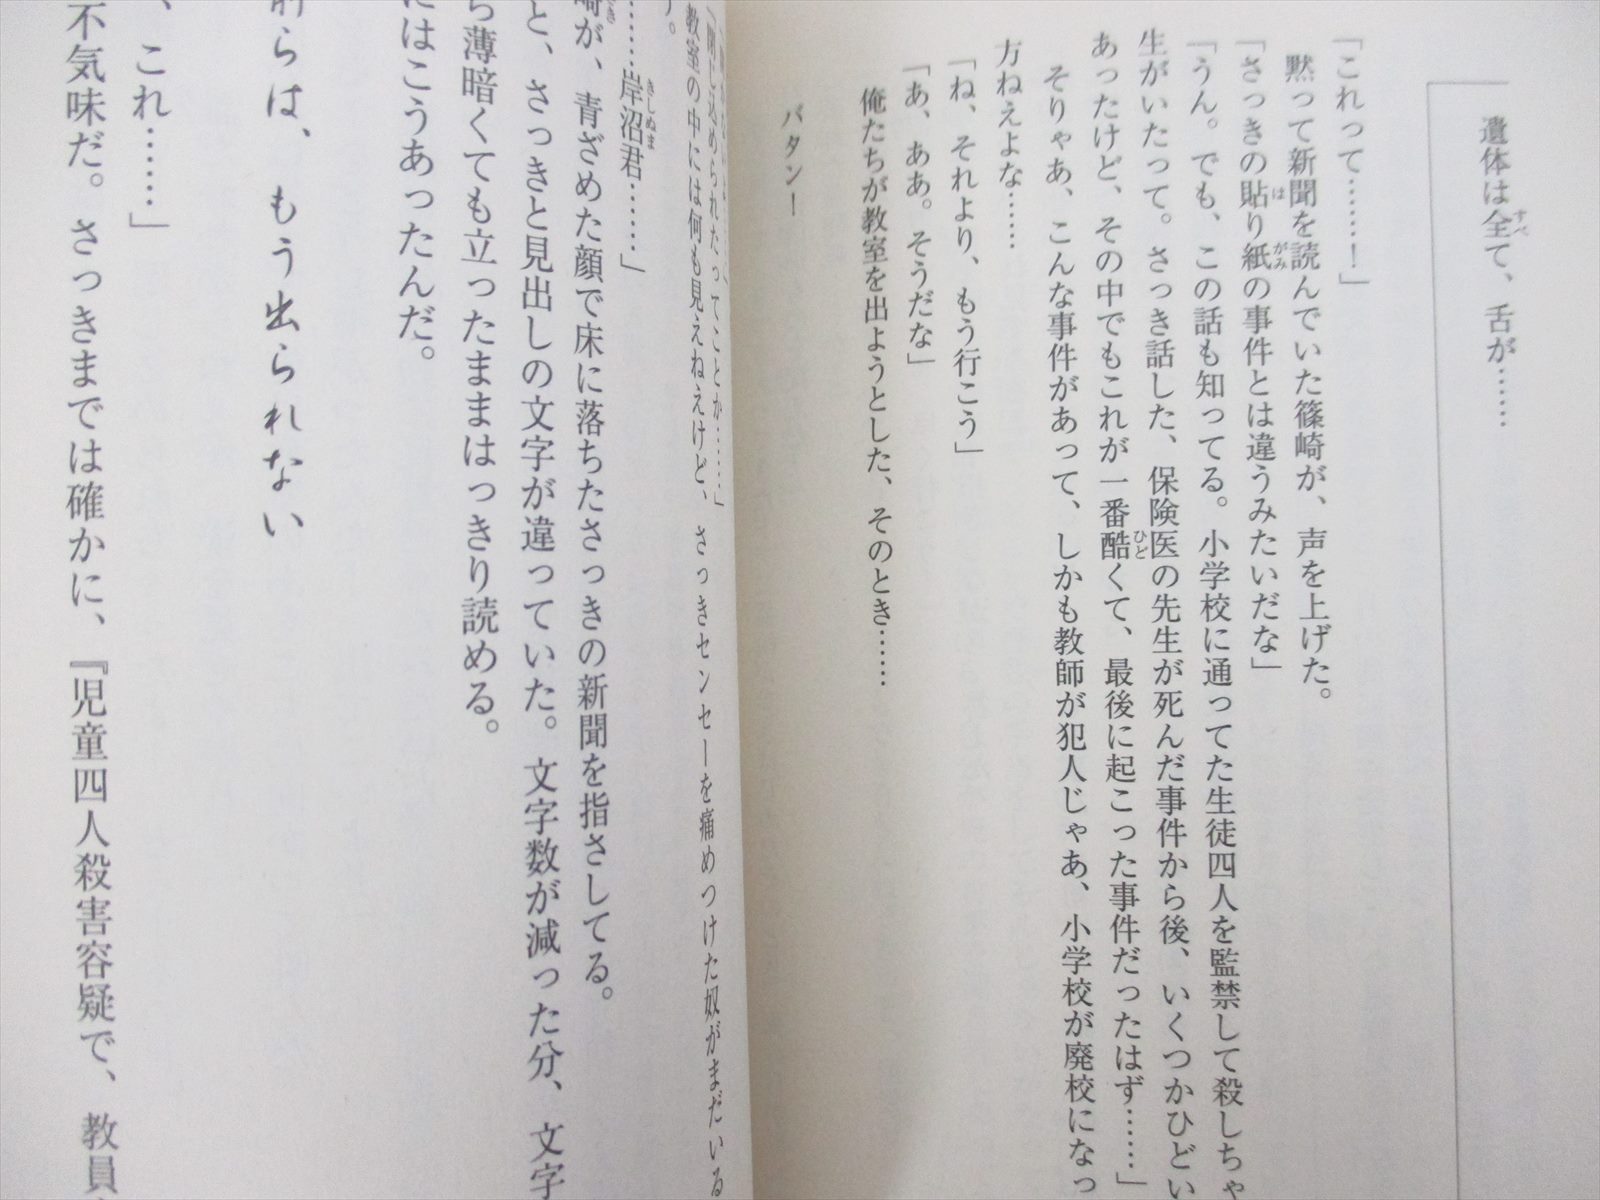 遺体は全て、舌が……
「これって……！」
黙って新聞を読んでいた篠崎が、声を上げた。
「さっきの貼り紙の事件とは違うみたいだな」
「うん。でも、この話も知ってる。小学校に通ってた生徒四人を監禁して殺しちゃ
生がいたって。さっき話した、保険医の先生が死んだ事件から後、いくつかひどい
あったけど、その中でもこれが一番酷くて、最後に起こった事件だったはず……」
そりゃあ、こんな事件があって、しかも教師が犯人じゃあ、小学校が廃校になっ
方ねえよな……
「ね、それより、もう行こう」
「あ、ああ。そうだな」
俺たちが教室を出ようとした、そのとき……
バタン！
「閉じ込められたってことか……」
教室の中には何も見えねえけど、さっきセンセーを痛めつけた奴がまだいる
す。
……岸沼君……」
崎が、青ざめた顔で床に落ちたさっきの新聞を指さしてる。
と、さっきと見出しの文字が違っていた。文字数が減った分、文字
ら薄暗くても立ったままはっきり読める。
にはこうあったんだ。
前らは、もう出られない
、これ……」
不気味だ。さっきまでは確かに、『児童四人殺害容疑で、教員